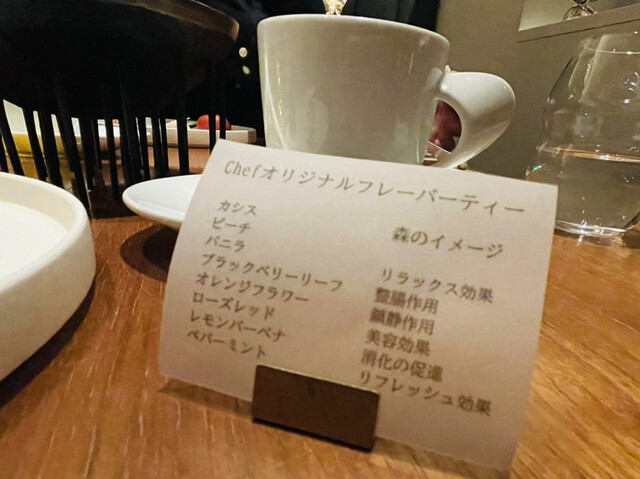 Chefオリジナルフレーバーティー
森のイメージ
カシス
ピーチ
バニラ
ブラックベリーリーフ リラックス効果
オレンジフラワー 整腸作用
ローズレッド 鎮静作用
レモンバーベナ 美容効果
ペパーミント 消化の促進
リフレッシュ効果